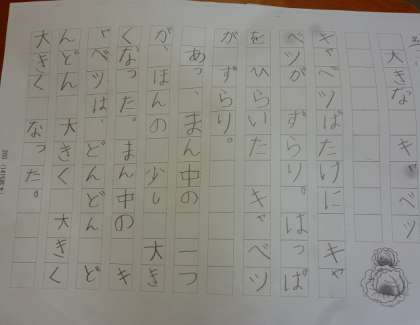 大きな キャベツ
キャベツばたけに キャ
ベツが ずらり。はっぱ
をひらいた キャベツ
がずらり。
あっ、まん中の 一つ
が、ほんの 少し 大き
くなった。まん中の キ
ャベツは、どんどん ど
んどん 大きく 大きく
大きく なった。